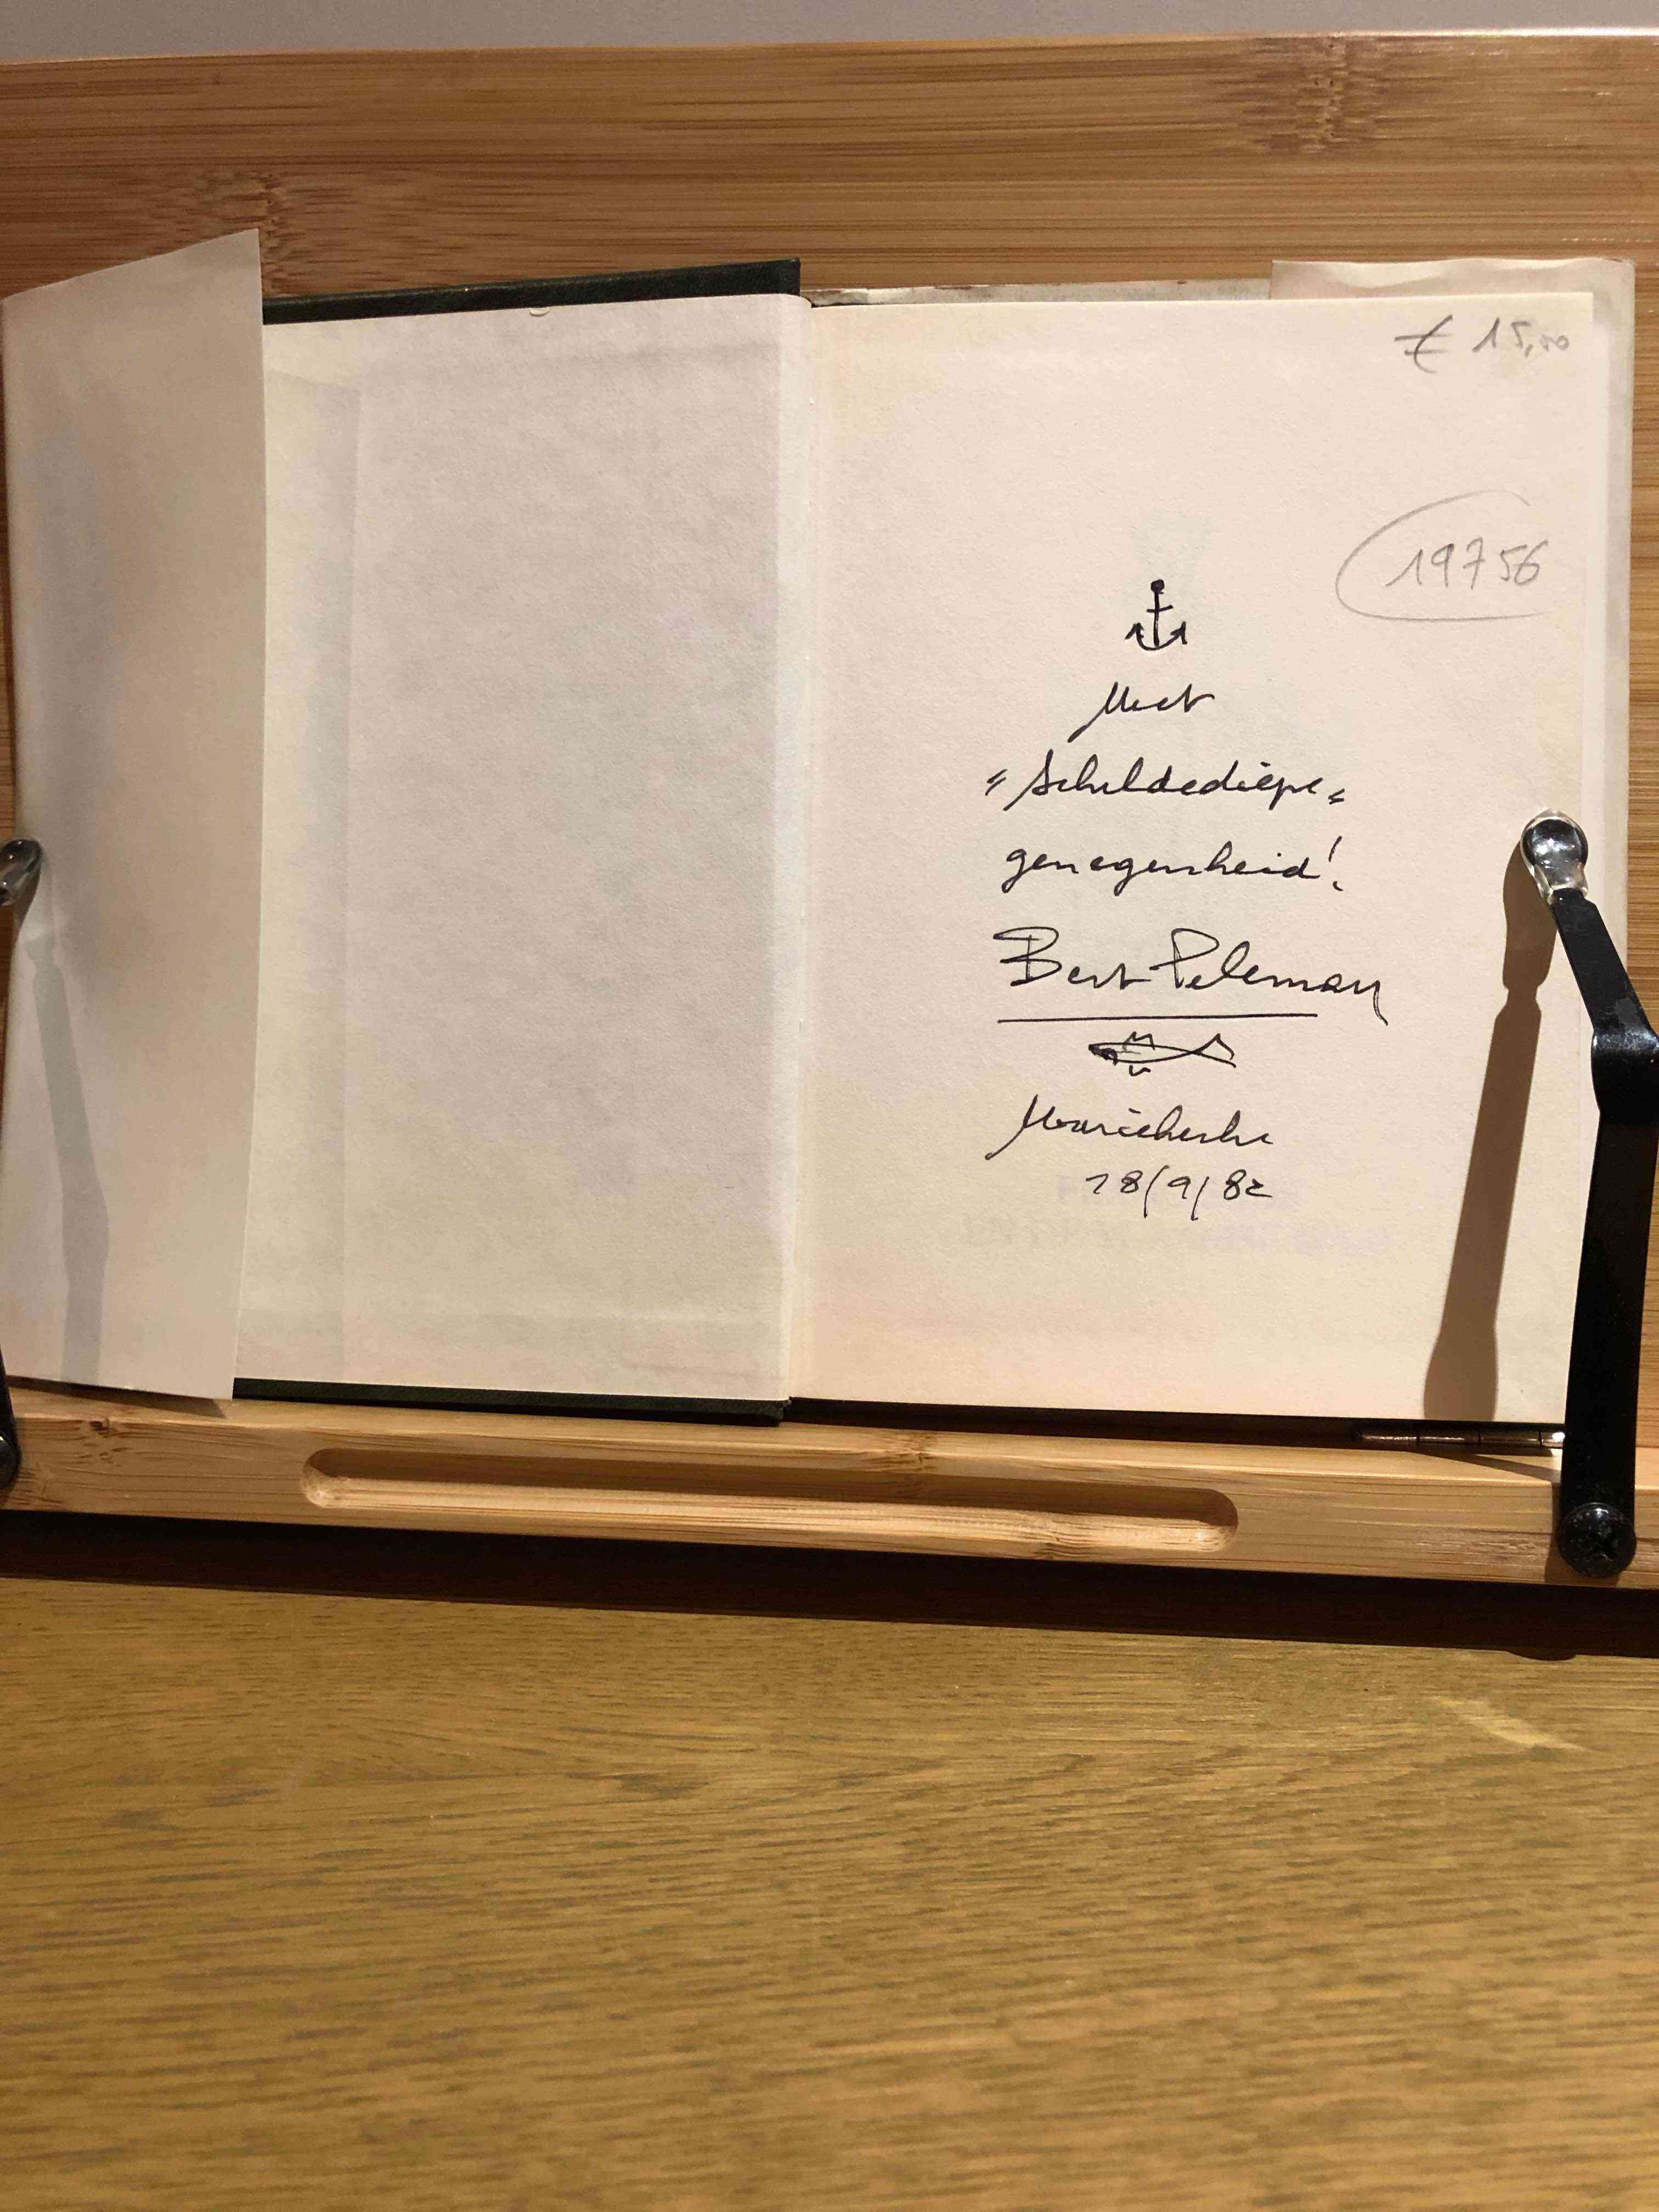 € 15,00
19756
Met
"Scheldediepe"
genegenheid!
Bert Peleman
Mariekerke
18/9/82